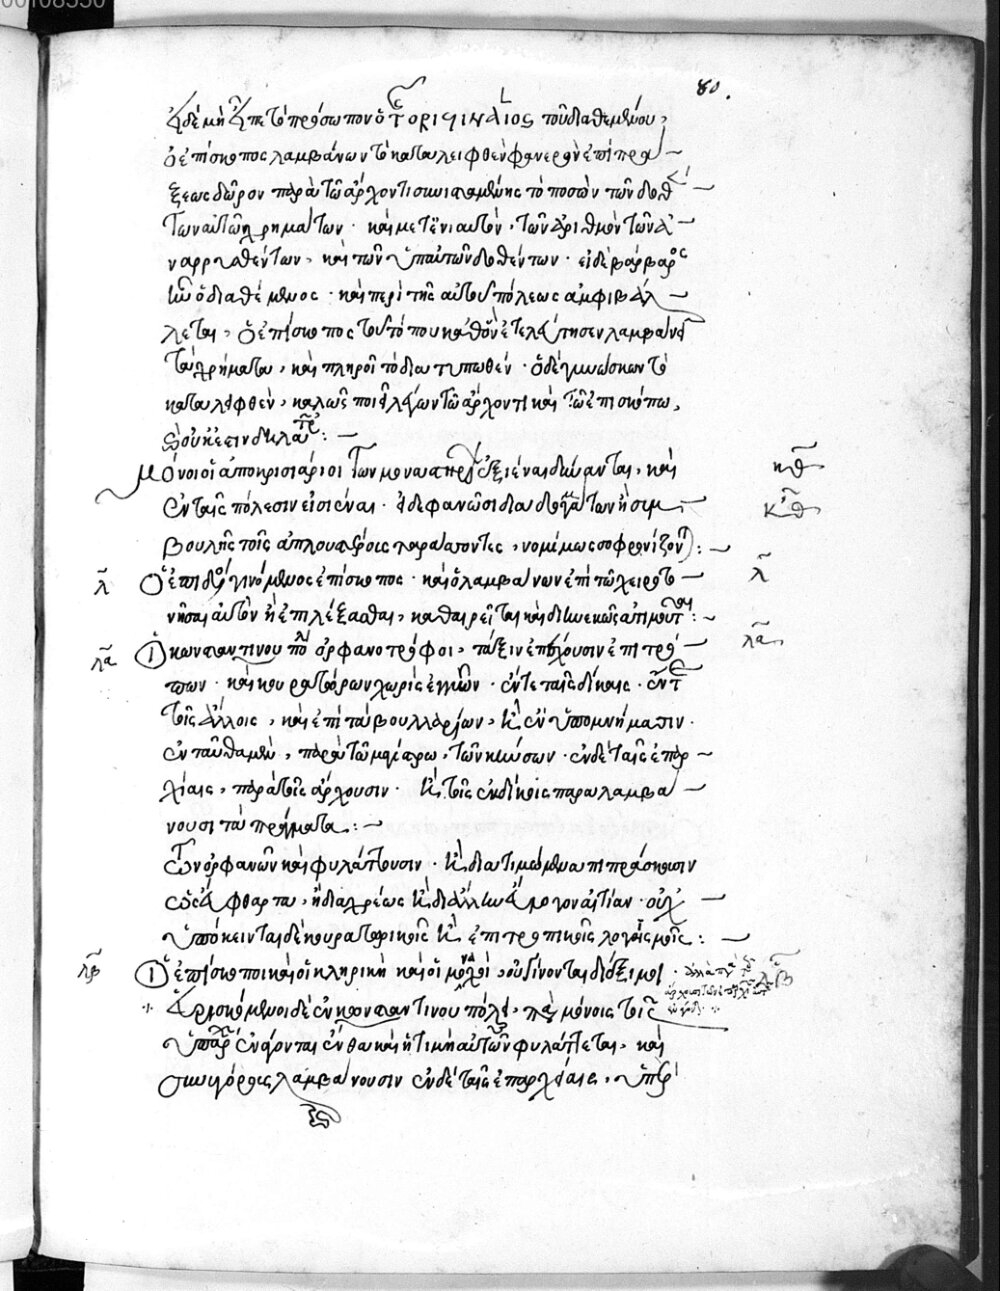 80.
εἰ δὲ μὴ εἶπε τὸ πρόσωπον ὁ ὀριγινάλιος τοῦ διαθεμένου,
ὁ ἐπίσκοπος λαμβάνων τὸ καταλειφθὲν φανερὸν ἐπὶ πρά
ξεως δῶρον παρὰ τῷ ἄρχοντι τὸ ποσὸν τῶν δοθέν
των αὐτῷ χρημάτων · καὶ μετ' ἐνιαυτὸν, τὸν ἀριθμὸν τῶν ἀ
ναρρυσθέντων, καὶ τῶν ὑπ' αὐτῶν δοθέντων · εἰ δὲ βάρβαρος
ἦν ὁ διαθέμενος · καὶ περὶ τῆς αὐτοῦ πόλεως ἀμφιβάλ
λεται, ὁ ἐπίσκοπος τοῦ τόπου καθ' ὃν ἐτελεύτησεν λαμβάνει
τὰ χρήματα, καὶ πληροῖ τὸ διατυπωθέν · ὁ δὲ γινώσκων τὸ
καταλειφθὲν, καλῶς ποιεῖ λέγων τῷ ἄρχοντι καὶ τῷ ἐπισκόπῳ,
οὐκ ἔστιν δηλάτωρ :
Μόνοι οἱ ἀποκρισιάριοι τῶν μοναστηρίων ἐξιέναι δύνανται, καὶ κθ
ἐν ταῖς πόλεσιν εἰσιέναι · εἰ δὲ φανῶσι διὰ δογμάτων ἢ συμ κθ
βουλῆς τοῖς ἁπλουστέροις ταράττοντες, νομίμως σωφρονίζονται :
λ Ὁ ἐπὶ δόσει γινόμενος ἐπίσκοπος · καὶ ὁ λαμβάνων ἐπὶ τῷ χειροτο λ
νῆσαι αὐτὸν ἢ ἐπιλέξασθαι, καθαιρεῖται καὶ διηνεκῶς ἀτιμοῦται :
λα Οἱ κωνσταντινουπόλεως ὀρφανοτρόφοι, τάξιν ἐπέχουσιν ἐπιτρό λα
πων · καὶ κουρατόρων χωρὶς ἐγγυῶν · ἔν τε ταῖς δίκαις · ἔν τε
τοῖς ἄλλοις, καὶ ἐπὶ ταβουλλαρίων, καὶ ἐν ὑπομνήμασιν ·
ἐνταῦθα μὲν, παρὰ τῷ μαγίστρῳ, τῶν κήνσων · ἐν δὲ ταῖς ἐπαρ
χίαις, παρὰ τοῖς ἄρχουσιν · καὶ τοῖς ἐκδίκοις παραλαμβά
νουσι τὰ πράγματα :
τῶν ὀρφανῶν καὶ φυλάττουσιν · καὶ διατιμώμενα πιπράσκουσιν
ὡς εὔφθαρτα, ἢ διὰ χρέως καὶ δι' ἄλλην εὔλογον αἰτίαν · οὐχ
ὑπόκεινται δὲ κουρατορικοῖς καὶ ἐπιτροπικοῖς λογισμοῖς :
λβ Οἱ ἐπίσκοποι καὶ οἱ κληρικοὶ καὶ οἱ μοναχοὶ, οὐ γίνονται διδόξιμοι · λβ
εὑρισκόμενοι δὲ ἐν κωνσταντινουπόλει, παρὰ μόνοις τοῖς
ὑπάρχοις ἐνάγονται ἔνθα καὶ ἡ τιμὴ αὐτῶν φυλάττεται, καὶ
συνηγόρους λαμβάνουσιν ἐν δὲ ταῖς ἐπαρχίαις, ὑπὲρ